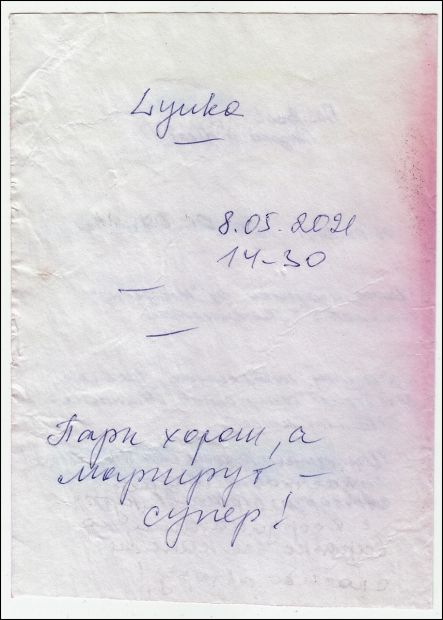 8.05.2021
14-30
Парк хорош, а
маршрут –
супер!